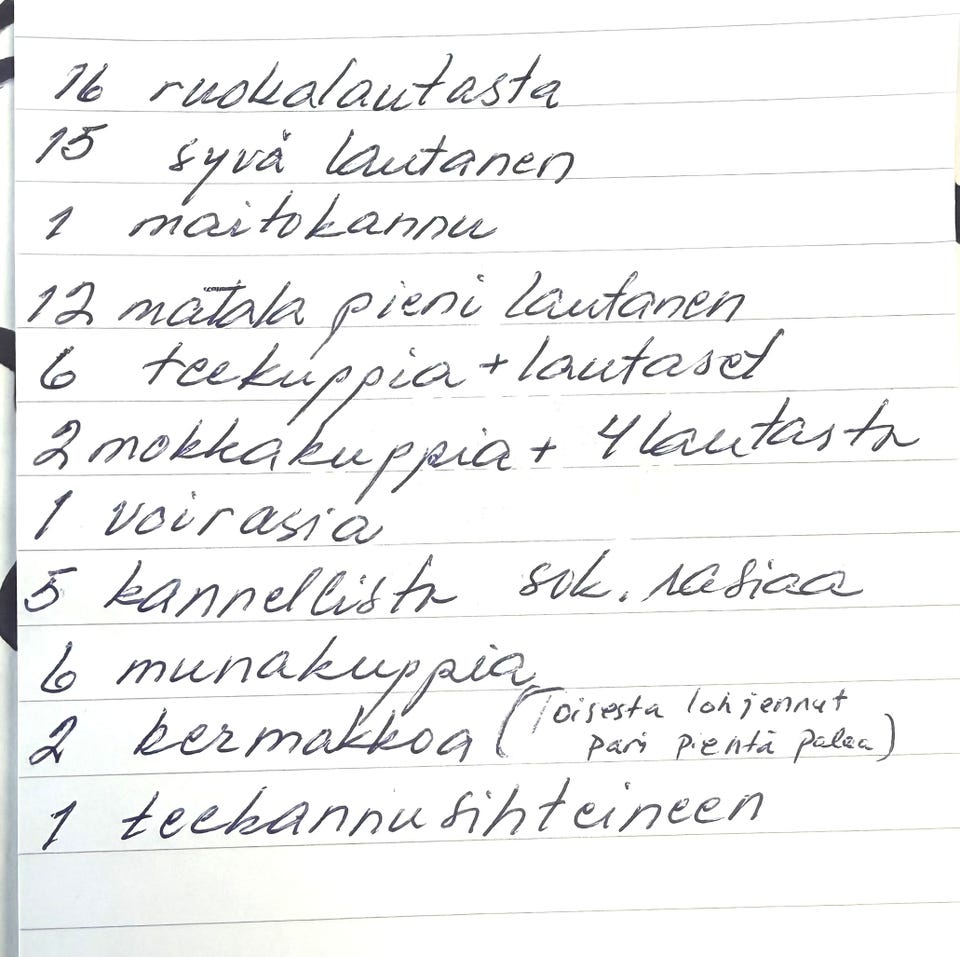 16 ruokalautasta
15 syvä lautanen
1 maitokannu
12 matala pieni lautanen
6 teekuppia + lautaset
2 mokkakuppia + 4 lautasta
1 voirasia
5 kannellista sok. rasiaa
6 munakuppia
2 kermakkoa (Toisesta lohjennut
pari pientä palaa)
1 teekannu sihteineen